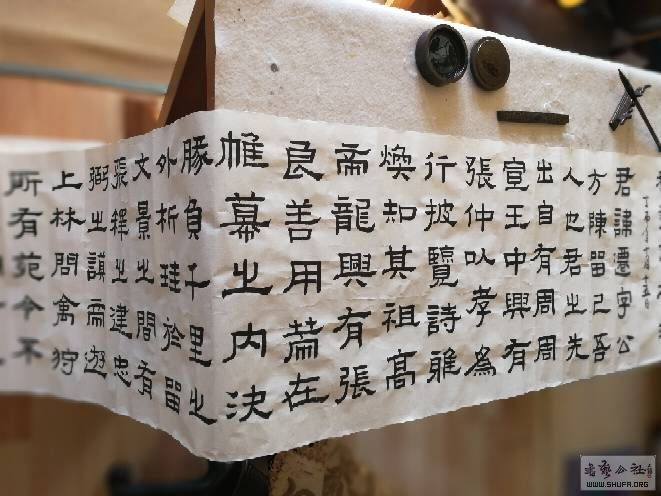 君諱遷字公
方陳留己吾
人也君之先
出自有周周
宣王中興有
張仲以孝為
行披覽詩雅
煥知其祖高
帝龍興有張
良善用在
帷幕之內決
勝負千里之
外析珪於留
文景之間有
張釋之建忠
弼之謨帝遊
上林問禽狩
所有苑令不
WWW.SHUFA.ORG